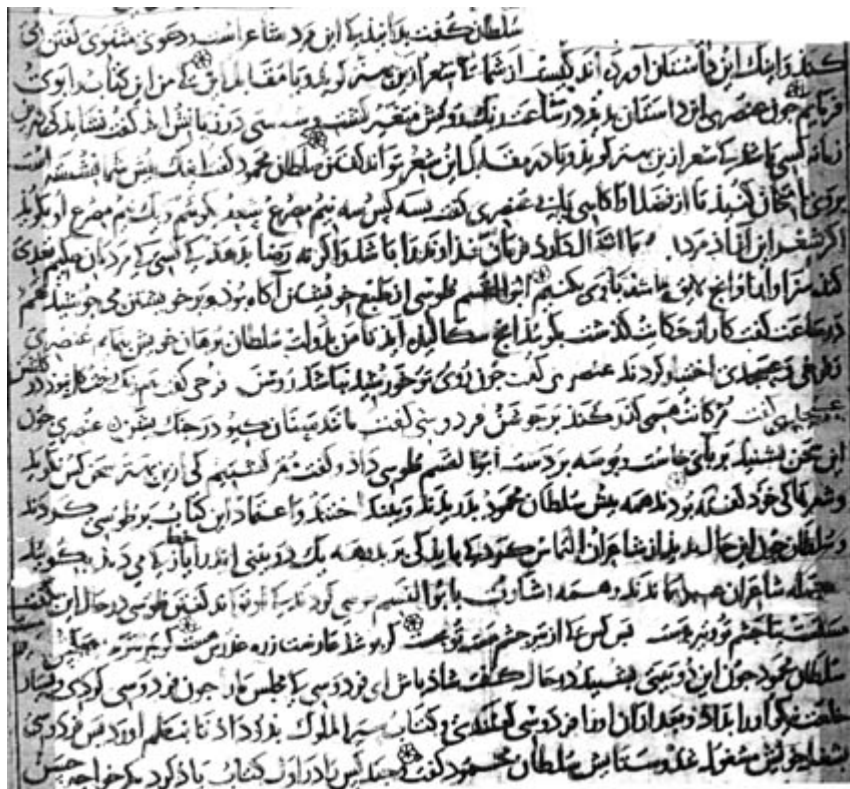 سلطان کفت بدانیذ کی این مرد شاعر است و دعوی مثنوی کفتن می
کند و اینک این داستان آورده اند کیست از شما کی شعر ازین بهتر کوید و با مقابل این کی من این کتاب را بوی
فرمایم جون عنصری این داستان بدید در ساعت رنک رویش متغیر کشت و سست شد زبانش کفت نشاید کی درین
زمانه کسی باشد کی شعر ازین بهتر کوید و یا در مقابل این شعر تواند کفتن سلطان محمود کفت اینک پیش شما نشسته است
بروی امتحان کنید تا از فضل او اکاهی یابید عنصری کفت بسه کس سه نیم مصرع شعر بکوئیم و یک نیم مصرع او بکوید
اکر شعر این ازاد مرد با ما انقدر دارد فرمان خداوند را باشد و اکر نه رضا بدهد کی کسی کی مردمان حکیم تعدی
کند سزا و ادب او انج لایق باشد بازی بکنیم ابوالقسم طوسی از طبع خویشتن آکاه بود و بر خویشتن می جوشید هم
در ساعت کفت کار از حکایت کذشت بکویید انج سکالیده ایذ تا من بدولت سلطان برهان خویش بنمایم عنصری
و فرخی و عسجدی اختیار کردند عنصری کفت جون روی تو خورشید نباشد روشن فرخی کفت هم رنک رخت کل نبود در کلشن
عسجدی کفت مژکانت همی کذر کند بر جوشن فردوسی کفت مانند سنان کیو در جنک بشن عنصری جون
این سخن بشنید بر پای خاست و بوسه بر دست ابوالقسم طوسی داد و کفت کی ازین بهتر سخن کس نکوید
و شعرهای خود کفته بودند همه پیش سلطان محمود بدریدند و بینداختند و اعتماد این کتاب بر طوسی کردند
و سلطان جون این حال بدید از شاعران التماس کرد کی باید کی بر بدیهه یک دو بیتی اندر خط ایاز کی می دمد بکویند
جمله شاعران عاجز بماندند و همه اشارت بابوالقسم طوسی کردند کی او تواند کفتن طوسی در حال این بکفت
مستست بتا جشم تو و تیر بدست بس کس کی ز تیر جشم مست تو بخست کر بوشد عارضت زره عذرش هست کز تیر بترسد همه کس
سلطان محمود جون این دو بیتی بشنید در حال کفت شاد باش ای فردوسی کی مجلس ما را جون فردوسی کردی و بسیار
خلعت نیکو او را بداد و بعد از آن او را فردوسی خواندندی و کتاب سیر الملوک بدو داد تا بنظم آورد پس فردوسی
بشغل خویش مشغول شد و ستایش سلطان محمود کفت و جند کس را در اول کتاب یاد کرد یکی خواجه حسن